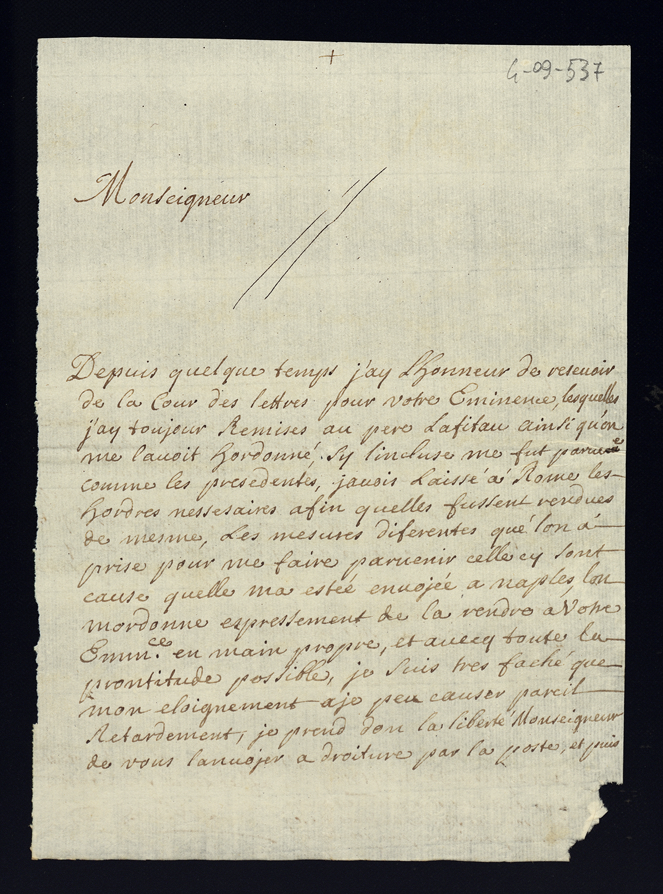 +
G-09-537
Monseigneur
Depuis quelque temps j'ay L'Honneur de reseuoir
de la Cour des lettres pour votre Eminence, lesquelles
j'ay toujour Remises au pere Lafitau ainsi qu'on
me lauoit hordonné, Sy lincluse me fut paruenue
comme les precedentes, jauois Laissé a Rome les
hordres nessesaires afin quelles fussent rendues
de mesme, Les mesures diferentes que lon á
prise pour me faire paruenir celle cy sont
cause quelle ma estéé enuojéé a naples, lon
mordonne espressement de la rendre a Votre
Emin.ce en main propre, et auecq toute la
prontitude possible, je suis tres faché que
mon eloignement aje peu causer pareil
Retardement, je prend don la liberté Monseigneur
de vous lanuojer a droiture par la poste, et puis